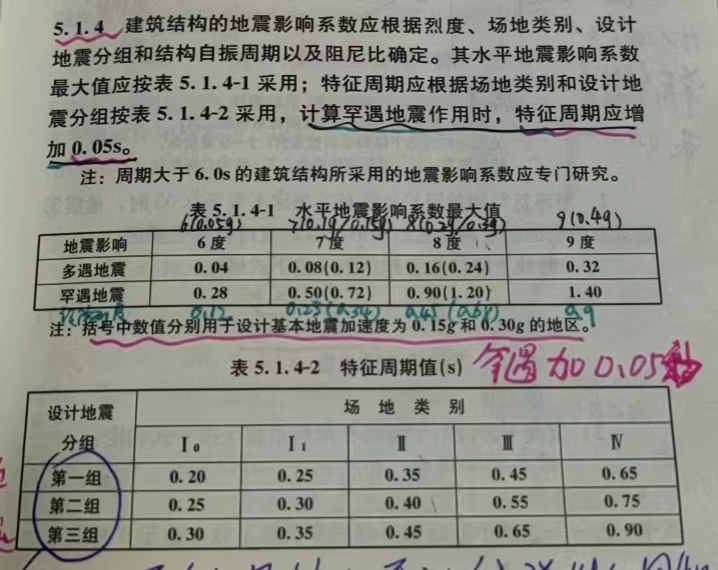 5.1.4 建筑结构的地震影响系数应根据烈度、场地类别、设计
地震分组和结构自振周期以及阻尼比确定。其水平地震影响系数
最大值应按表 5.1.4-1 采用；特征周期应根据场地类别和设计地
震分组按表 5.1.4-2 采用，计算罕遇地震作用时，特征周期应增
加 0.05s。
注：周期大于 6.0s 的建筑结构所采用的地震影响系数应专门研究。
表 5.1.4-1 水平地震影响系数最大值
6(0.05g) 7(0.1g/0.15g) 8(0.2g/0.3g) 9(0.4g)
地震影响 6 度 7 度 8 度 9 度
多遇地震 0.04 0.08(0.12) 0.16(0.24) 0.32
罕遇地震 0.28 0.50(0.72) 0.90(1.20) 1.40
0.12 0.23(0.34) 0.45(0.68) 0.9
注：括号中数值分别用于设计基本地震加速度为 0.15g 和 0.30g 的地区。
表 5.1.4-2 特征周期值(s) 罕遇加0.05秒
设计地震分组 场地类别
I₀ I₁ Ⅱ Ⅲ Ⅳ
第一组 0.20 0.25 0.35 0.45 0.65
第二组 0.25 0.30 0.40 0.55 0.75
第三组 0.30 0.35 0.45 0.65 0.90